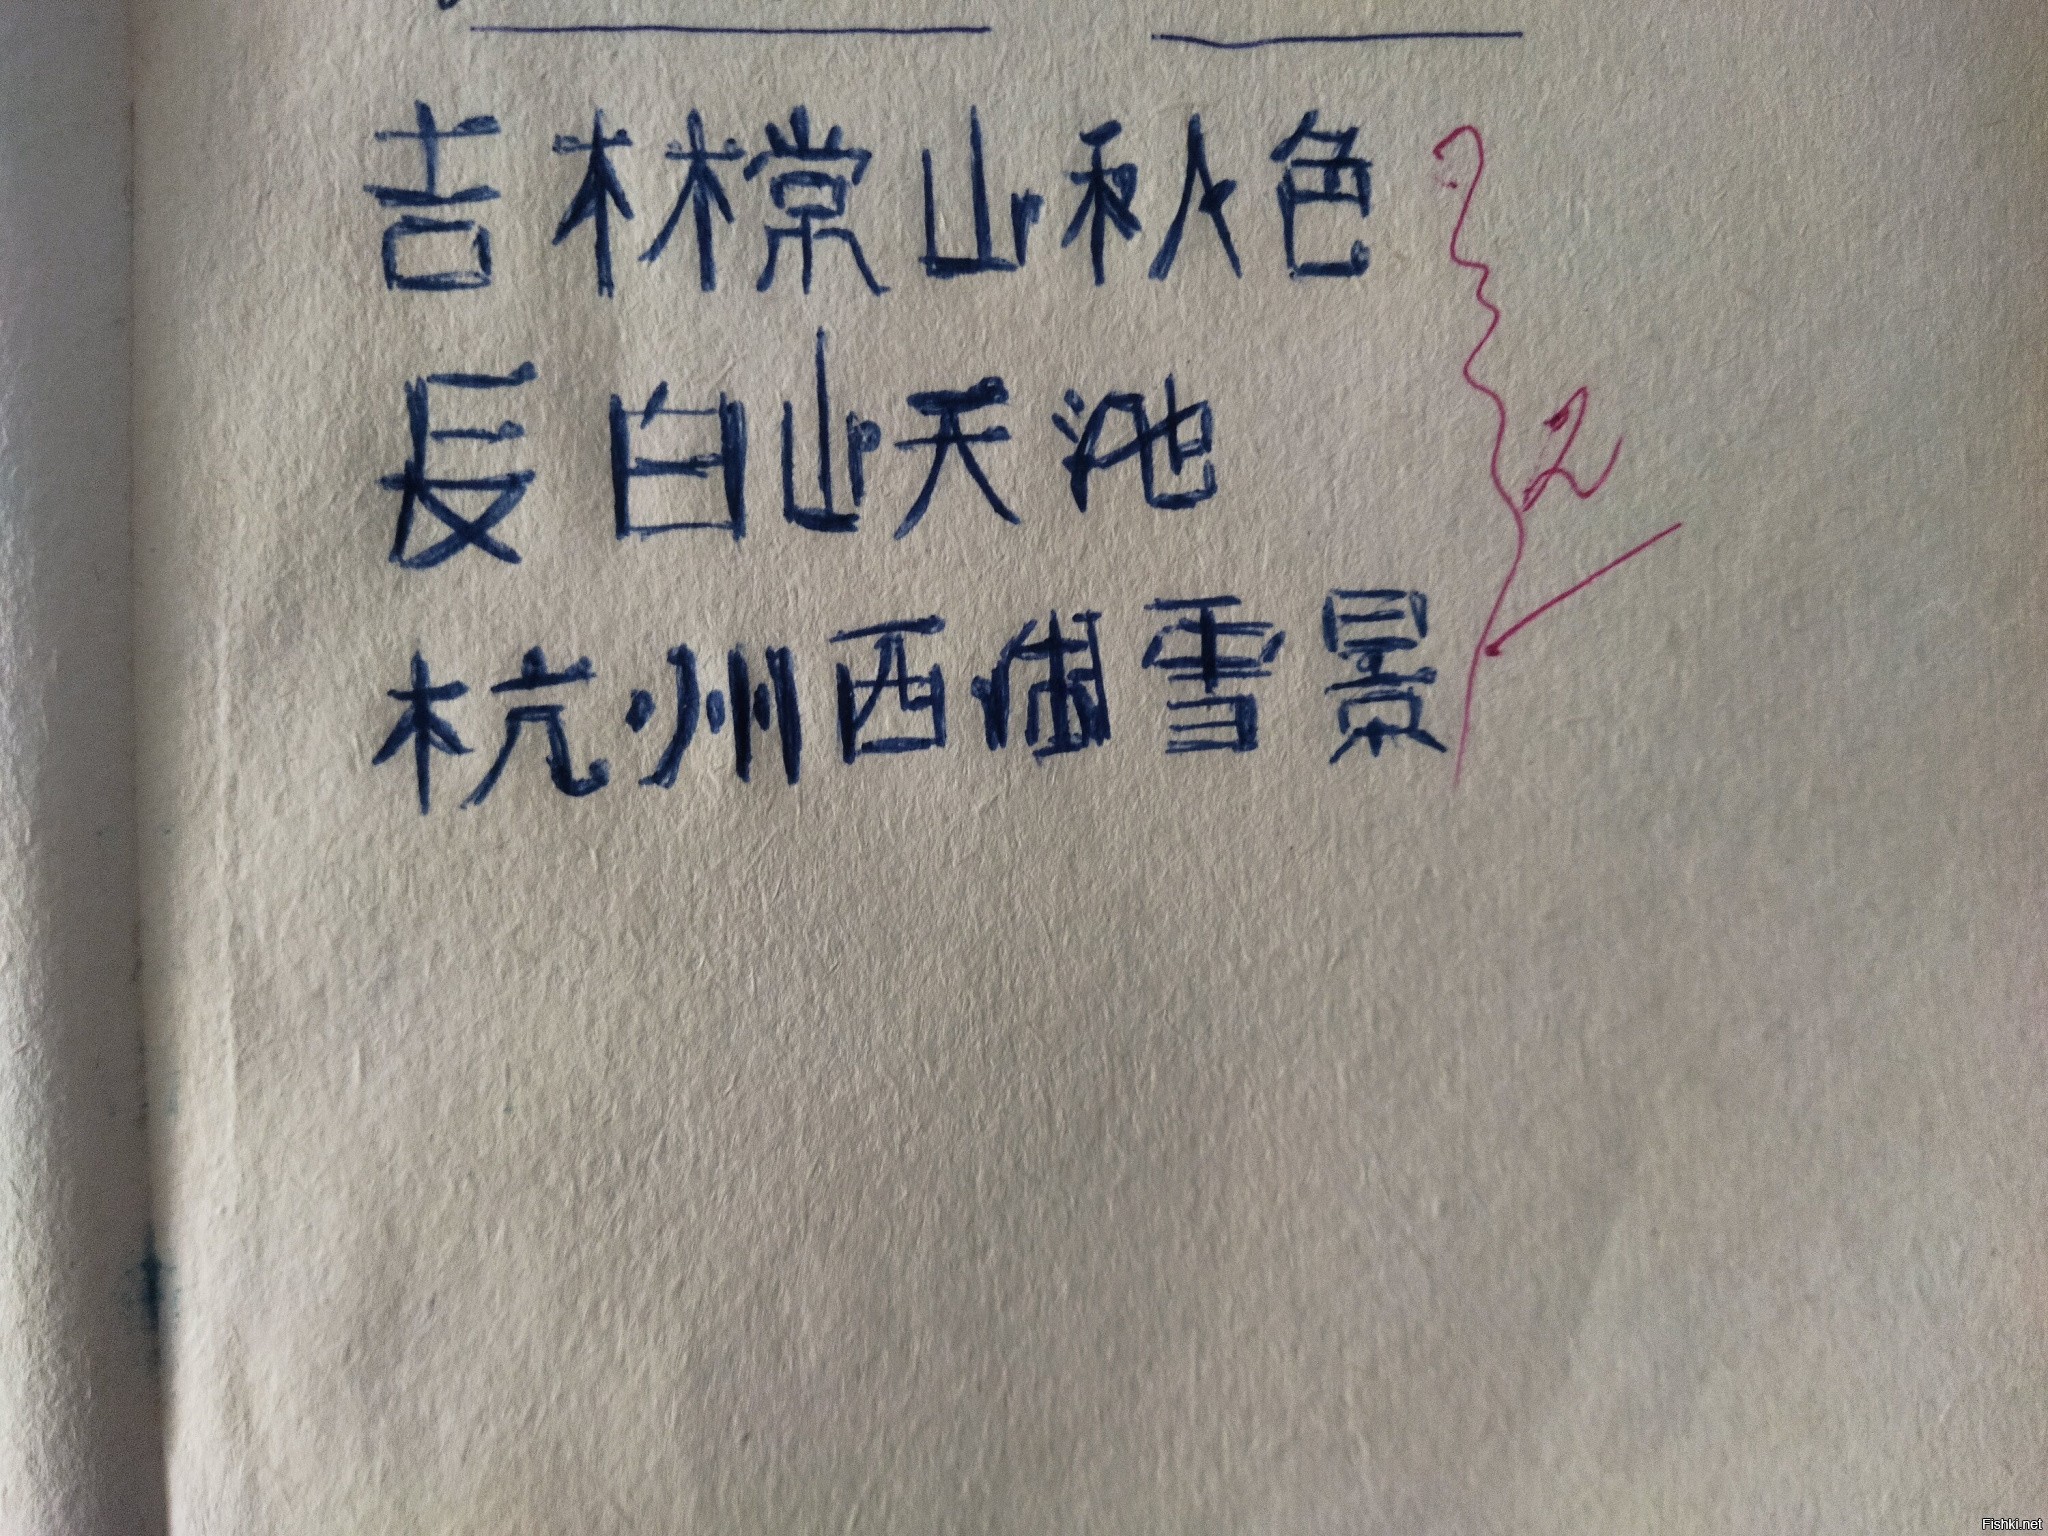 吉林常山秋色
長白山天池
2
杭州西湖雪景
Fishki.net